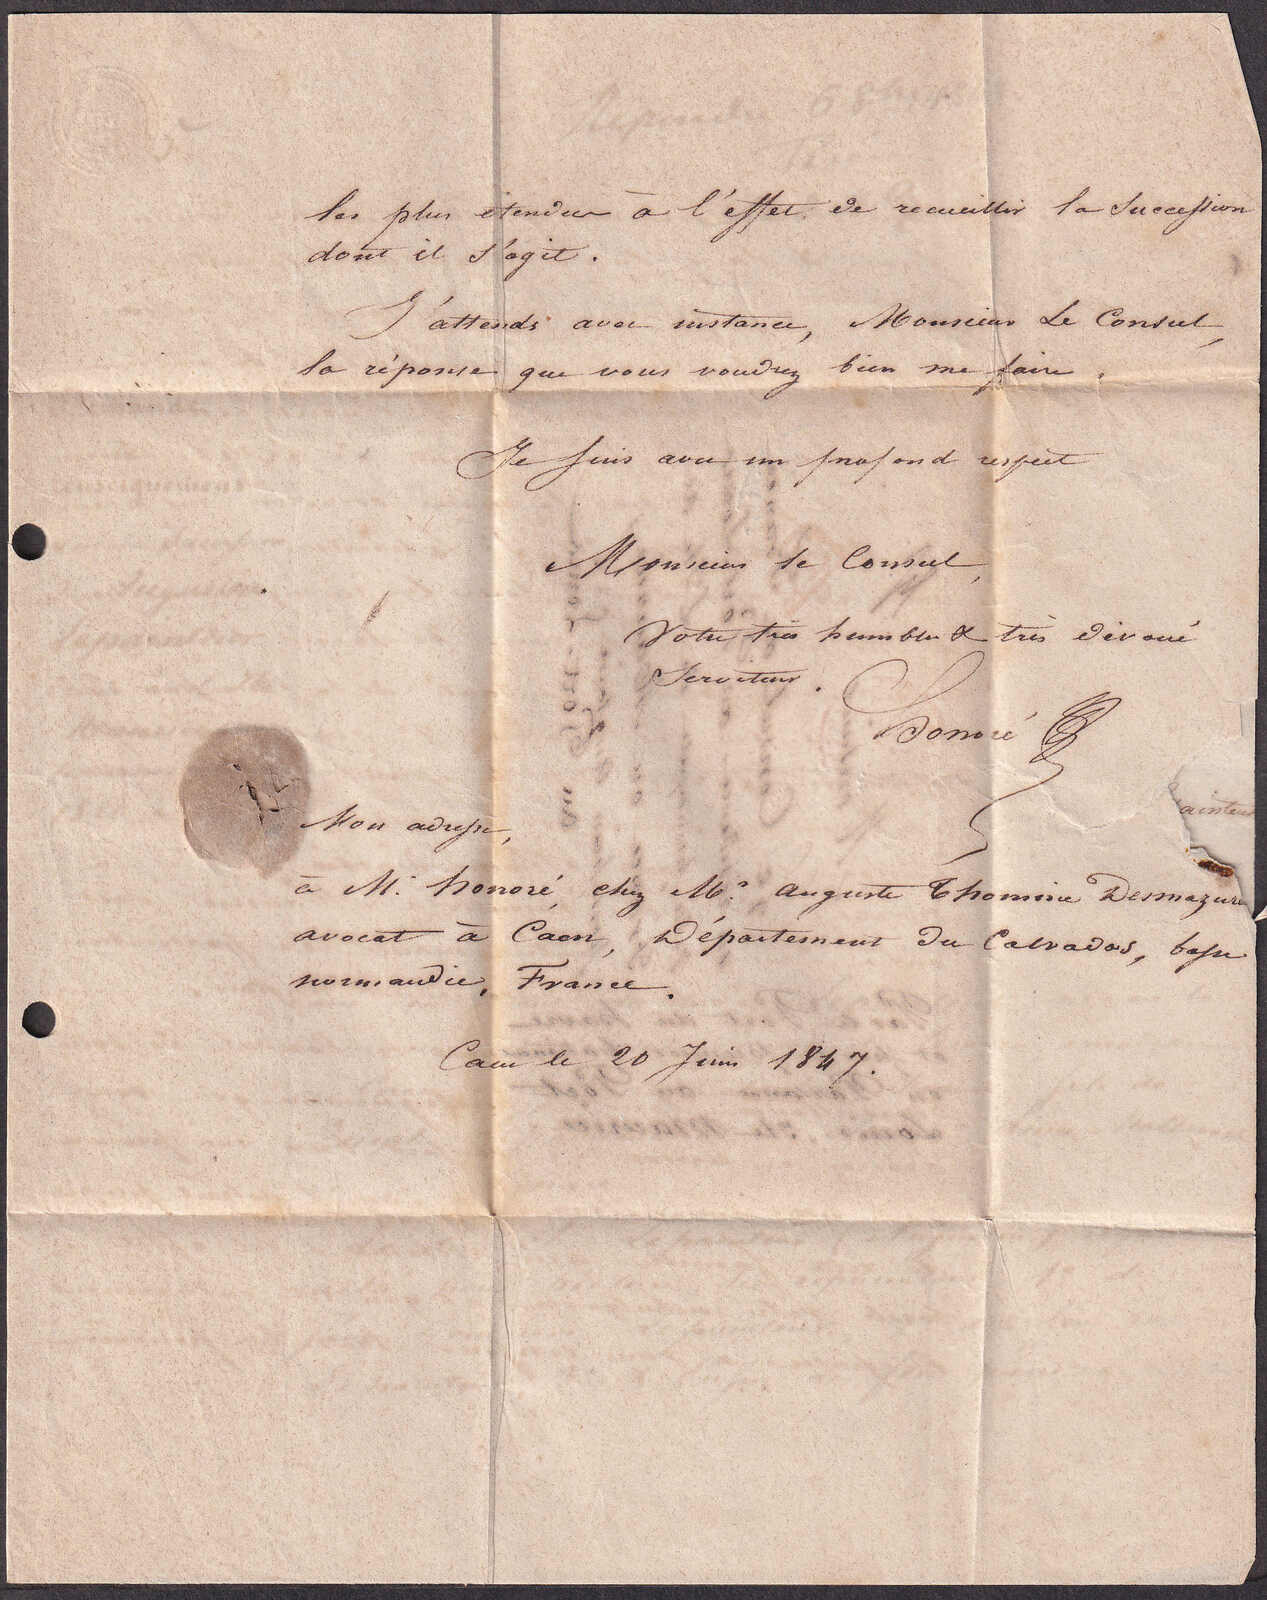 les plus étendus à l'effet de recueillir la succession
dont il s'agit.
J'attends avec instance, Monsieur Le Consul,
la réponse que vous voudrez bien me faire.
Je suis avec un profond respect
Monsieur le Consul,
Votre très humble & très dévoué
Serviteur.
Honoré
Mon adresse,
à Mr. honoré, chez Me. auguste Thomine Desmazures
avocat à Caen, Département du Calvados, basse
normandie, France.
Caen le 20 Juin 1847.